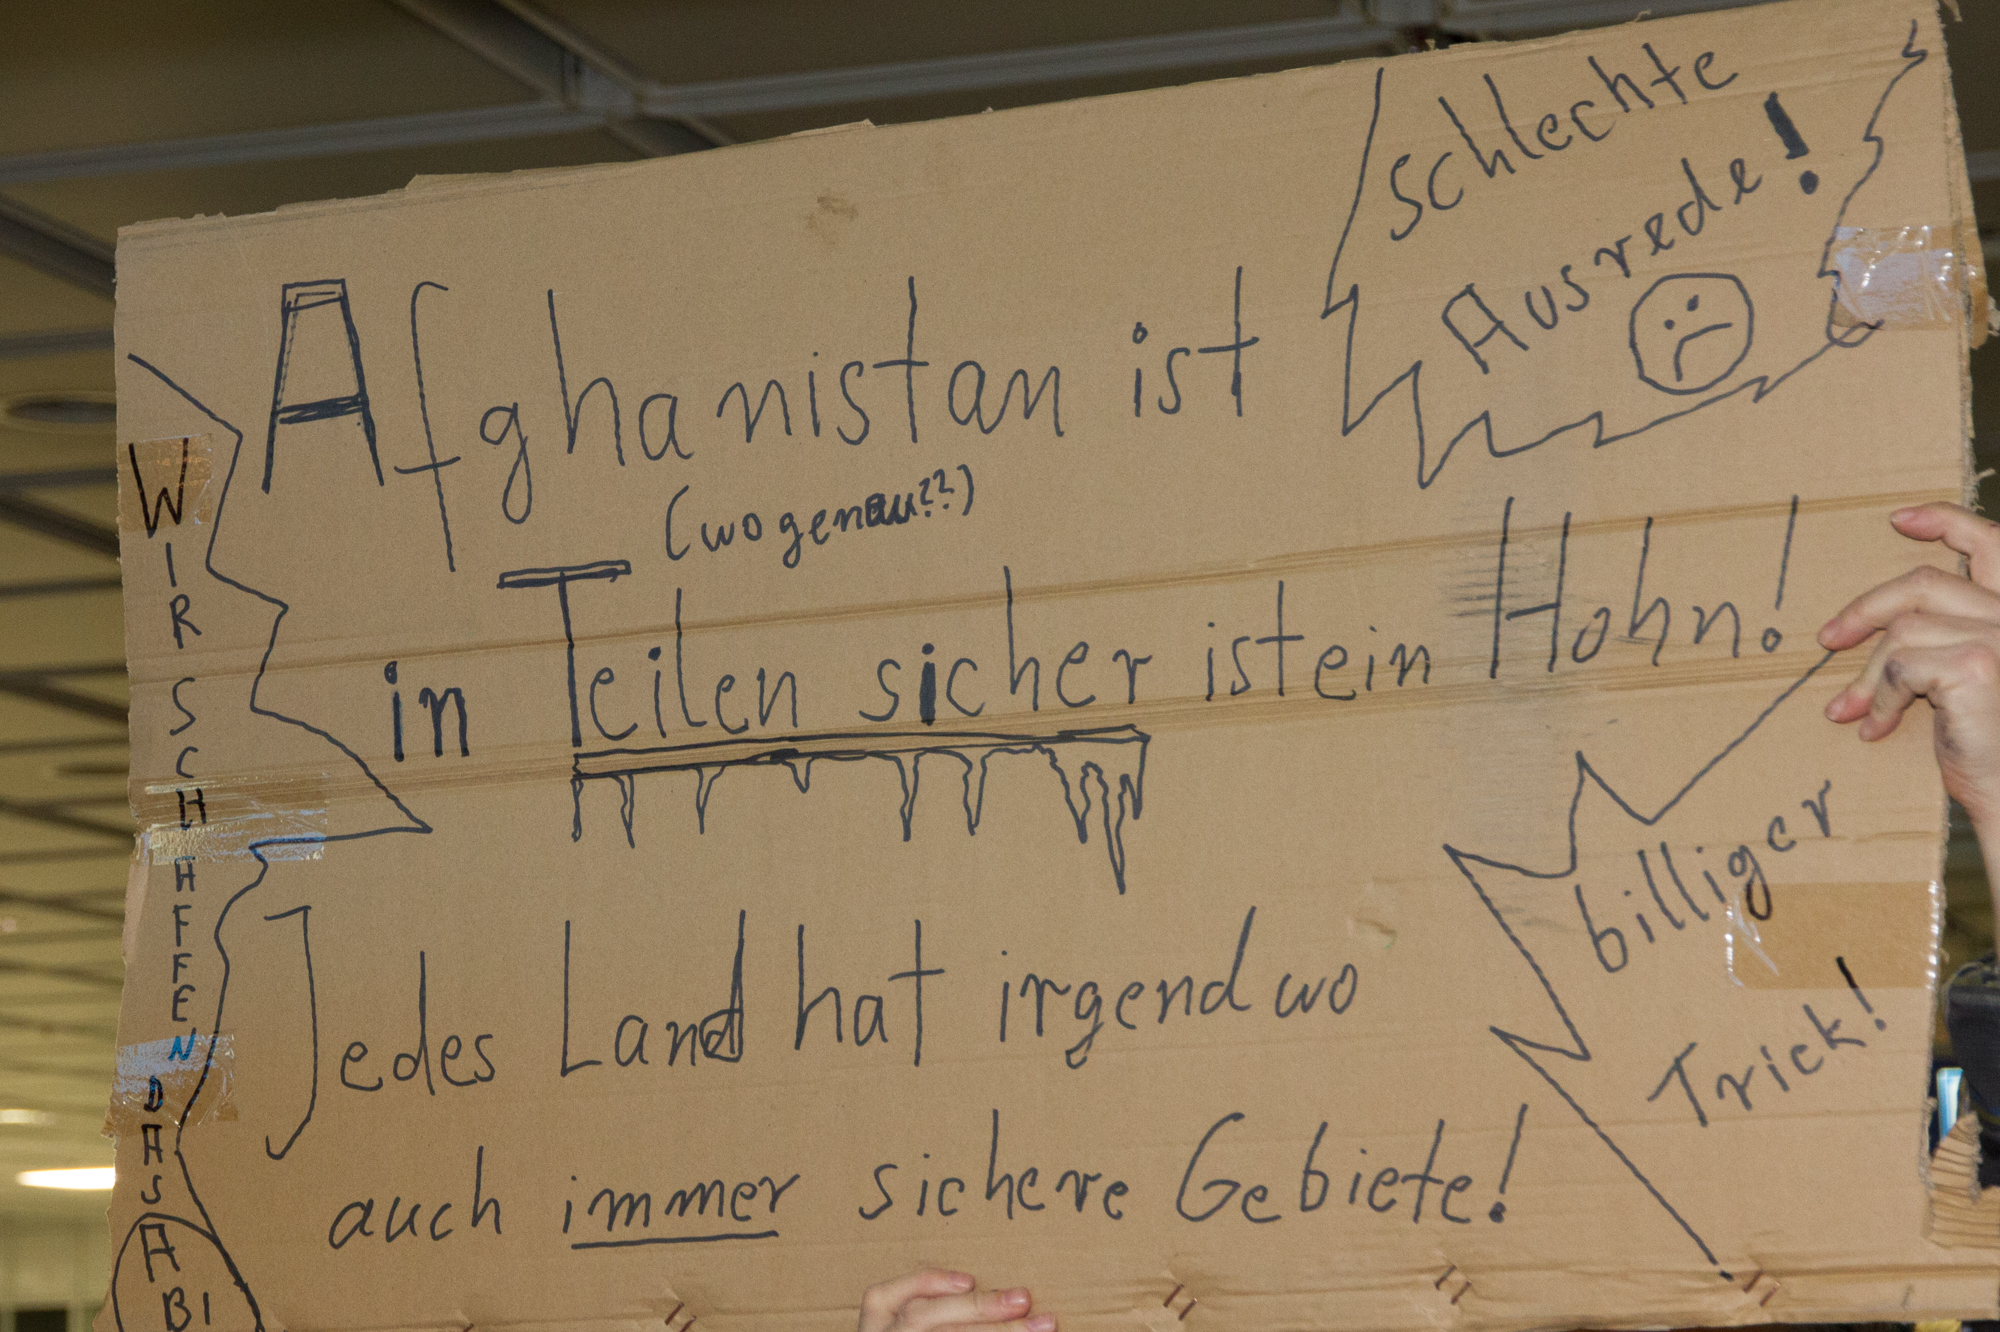 schlechte
Ausrede!
Afghanistan ist
(wo genau??)
in Teilen sicher ist ein Hohn!
Jedes Land hat irgendwo
auch immer sichere Gebiete!
billiger
Trick!
WIR SCHHFFEN DAS
ABI